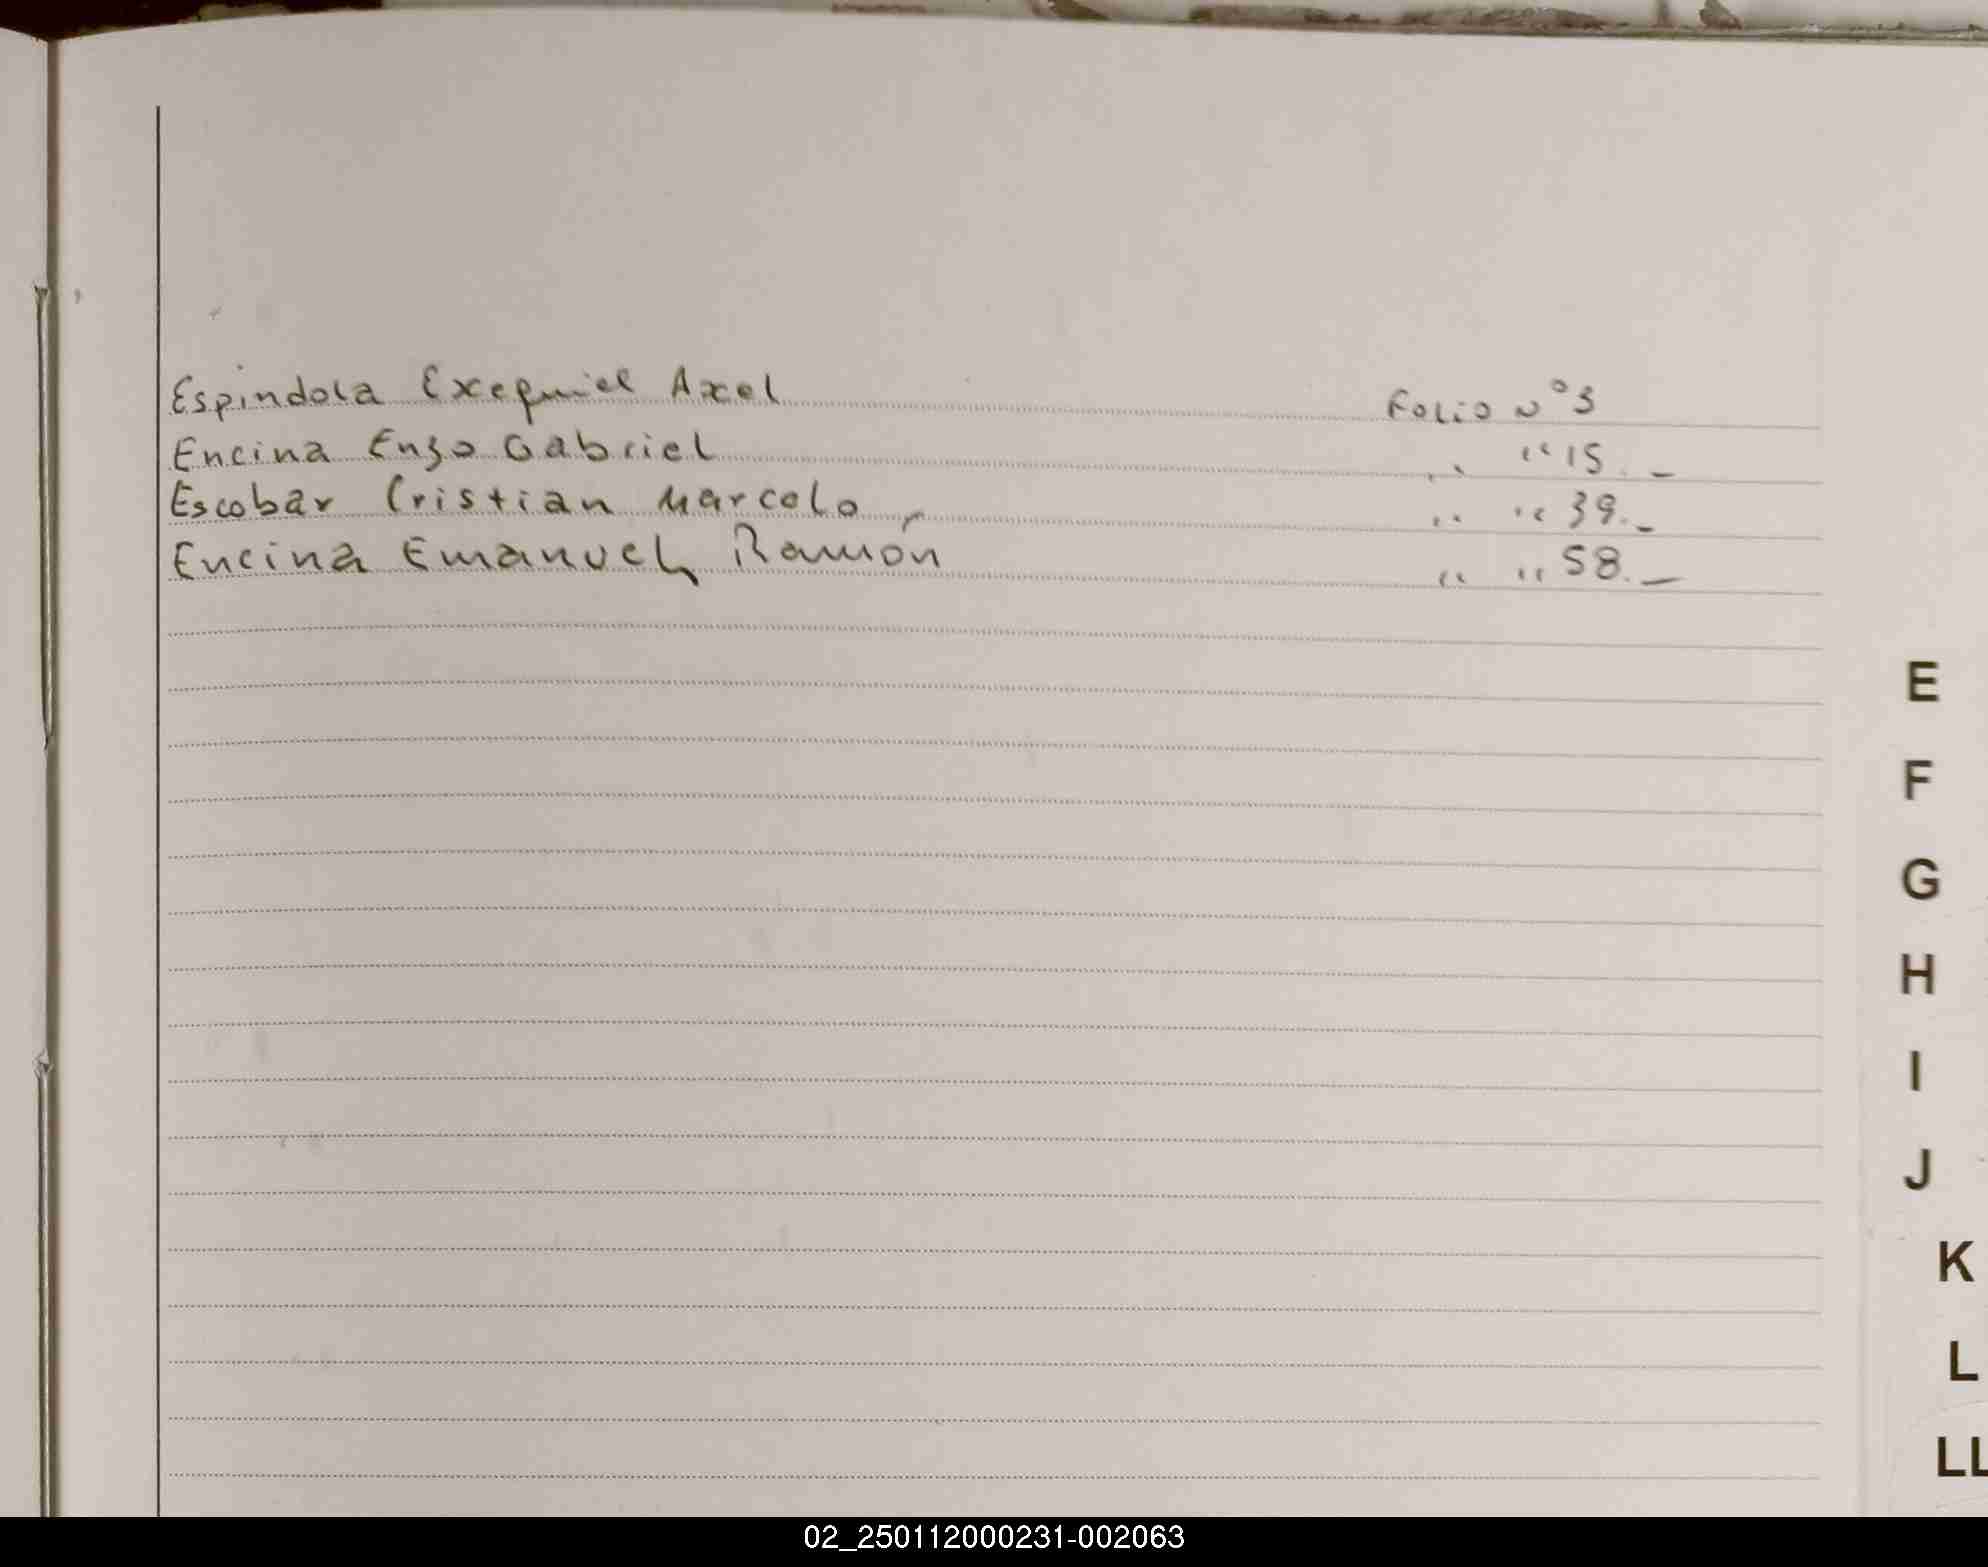 Espindola Exequiel Axel Folio N°3
Encina Enzo Gabriel ,, “15.-
Escobar Cristian Marcelo ,, “ 39.-
Encina Emanuel Ramón “ “ 58.-
E
F
G
H
I
J
K
L
LL
02_250112000231-002063